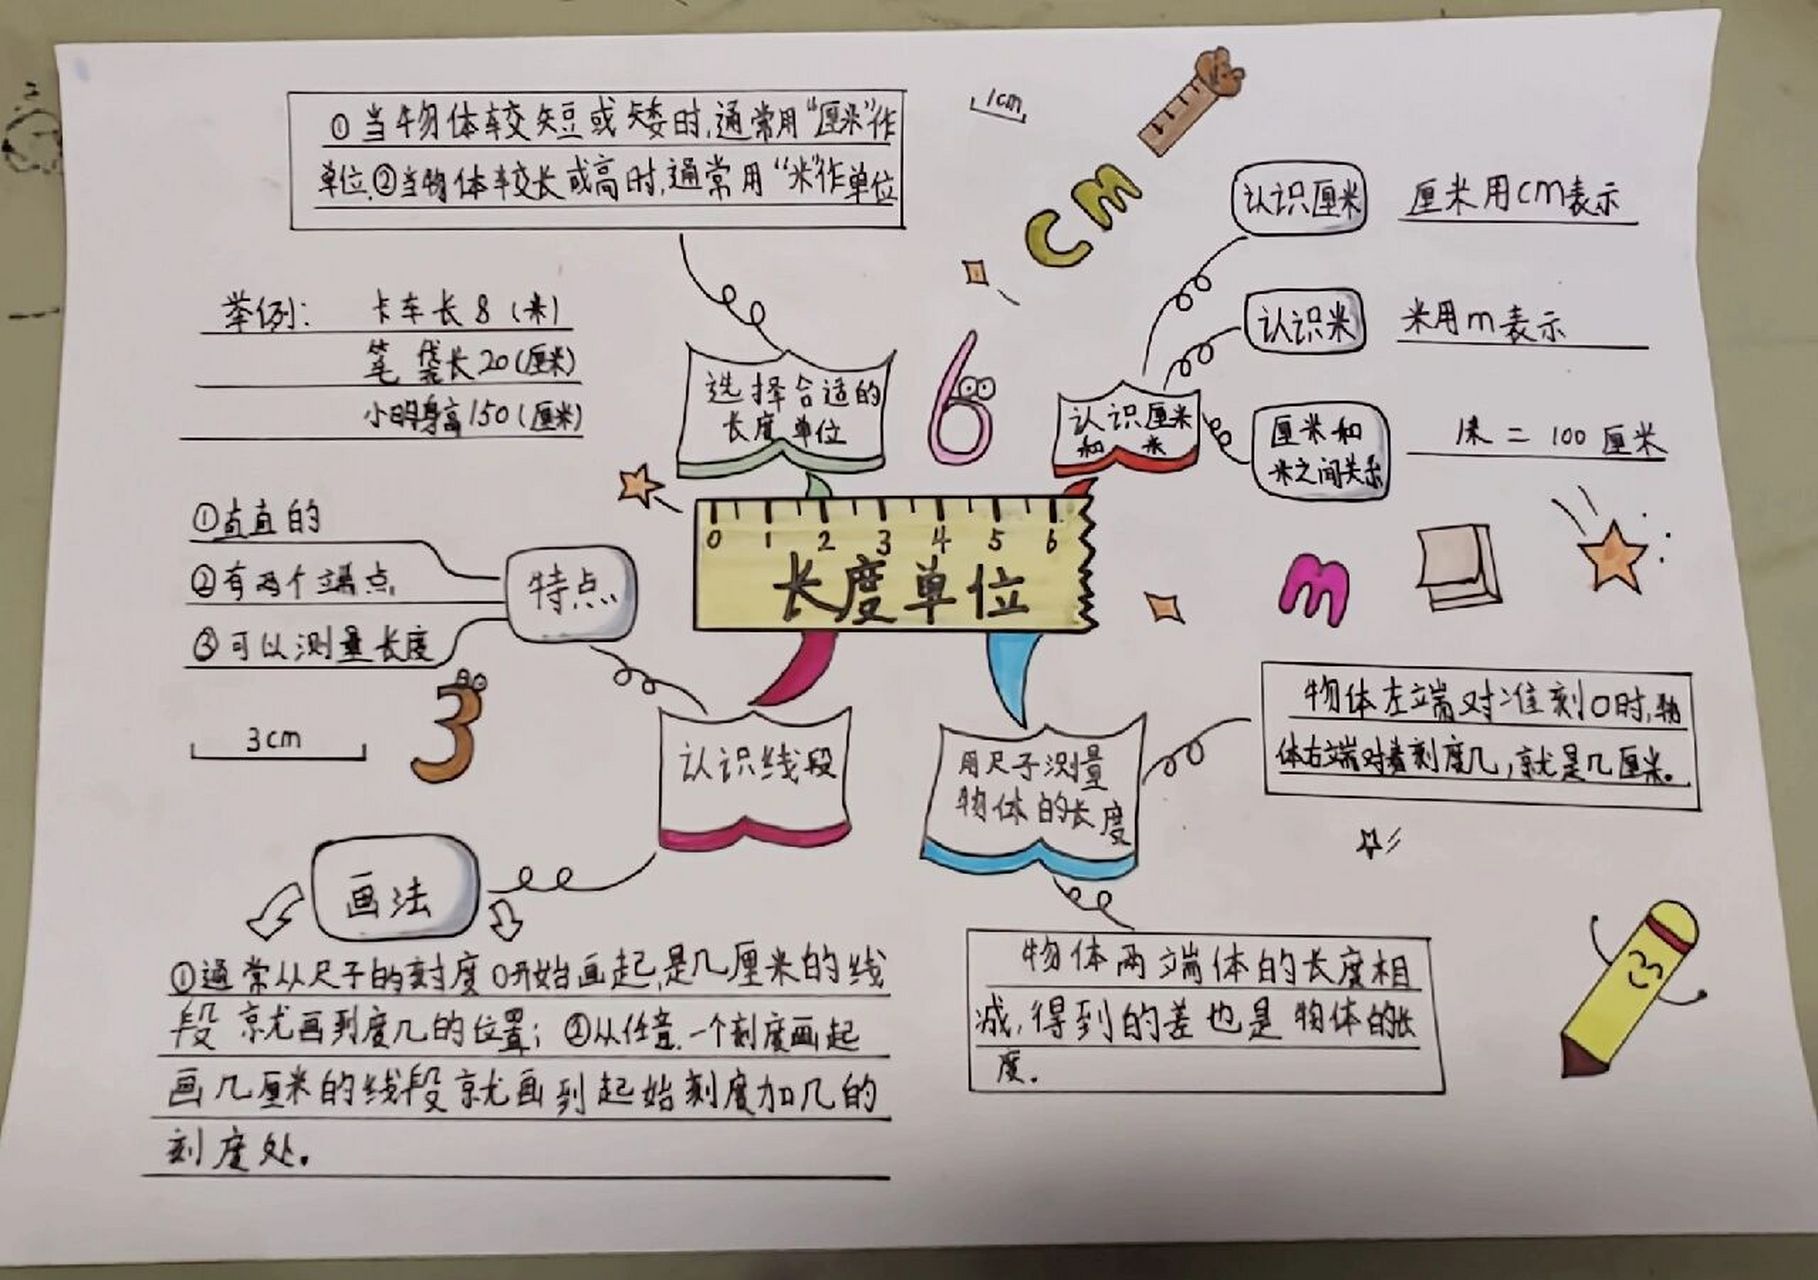 ①当物体较短或矮时,通常用“厘米”作
单位.②当物体较长或高时,通常用“米”作单位
举例: 卡车长8(米)
笔袋长20(厘米)
小明身高150(厘米)
选择合适的
长度单位
1cm
cm
6
认识厘米
和 米
认识厘米
厘米用cm表示
认识米
米用m表示
厘米和
米之间关系
1米=100厘米
0 1 2 3 4 5 6
长度单位
m
特点
①直直的
②有两个端点
③可以测量长度
3cm
3
认识线段
画法
①通常从尺子的刻度0开始画起,是几厘米的线
段就画到度几的位置;②从任意一个刻度画起
画几厘米的线段就画到起始刻度加几的
刻度处。
用尺子测量
物体的长度
物体左端对准刻0时,物
体右端对着刻度几,就是几厘米。
物体两端体的长度相
减,得到的差也是物体的长
度.